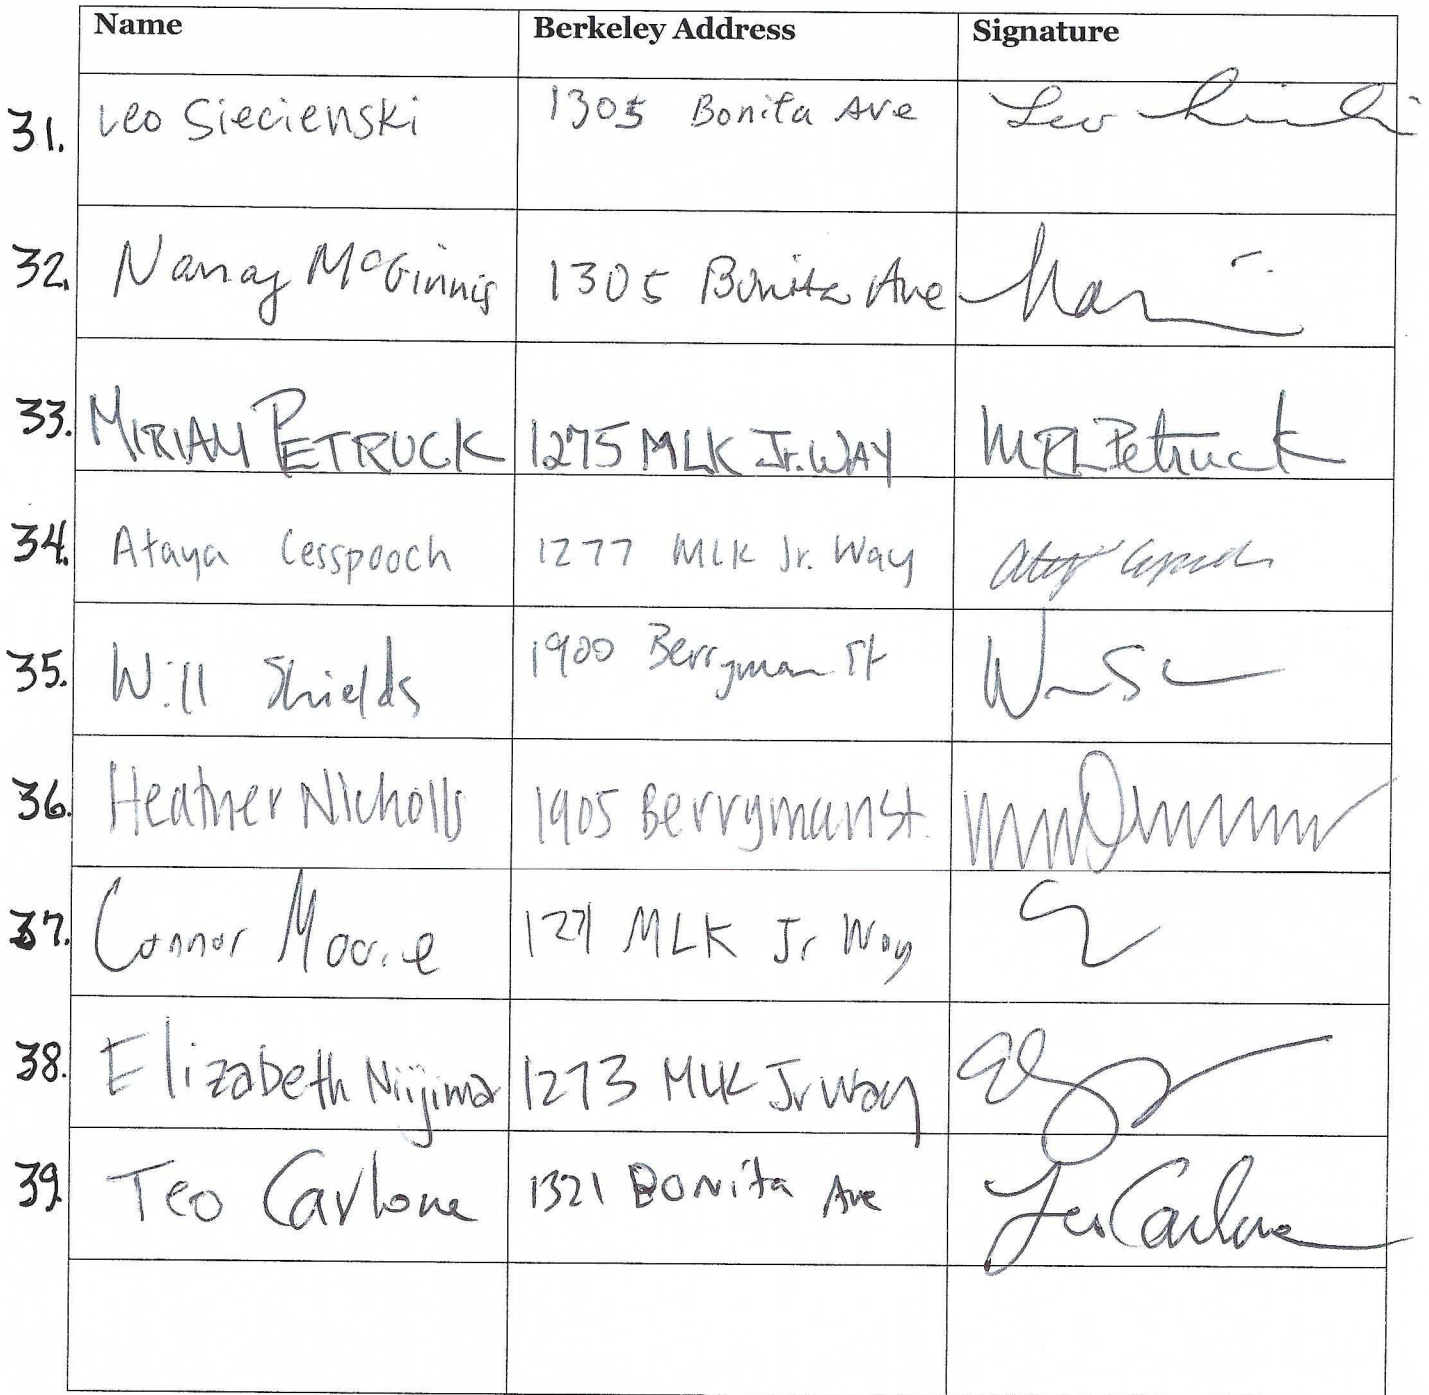 Name Berkeley Address Signature
31. Leo Siecienski 1305 Bonita Ave Leo
32. Nancy McGinnis 1305 Bonita Ave
33. MIRIAM PETRUCK 1275 MLK Jr. WAY MRLPetruck
34. Ataya Cesspooch 1277 MLK Jr. Way
35. Will Shields 1900 Berryman St
36. Heather Nicholls 1905 Berryman St.
37. Connor Moore MLK Jr Way
38. Elizabeth Niijima 1273 MLK Jr Way
39. Teo Carlone 1321 Bonita Ave Teo Carlone